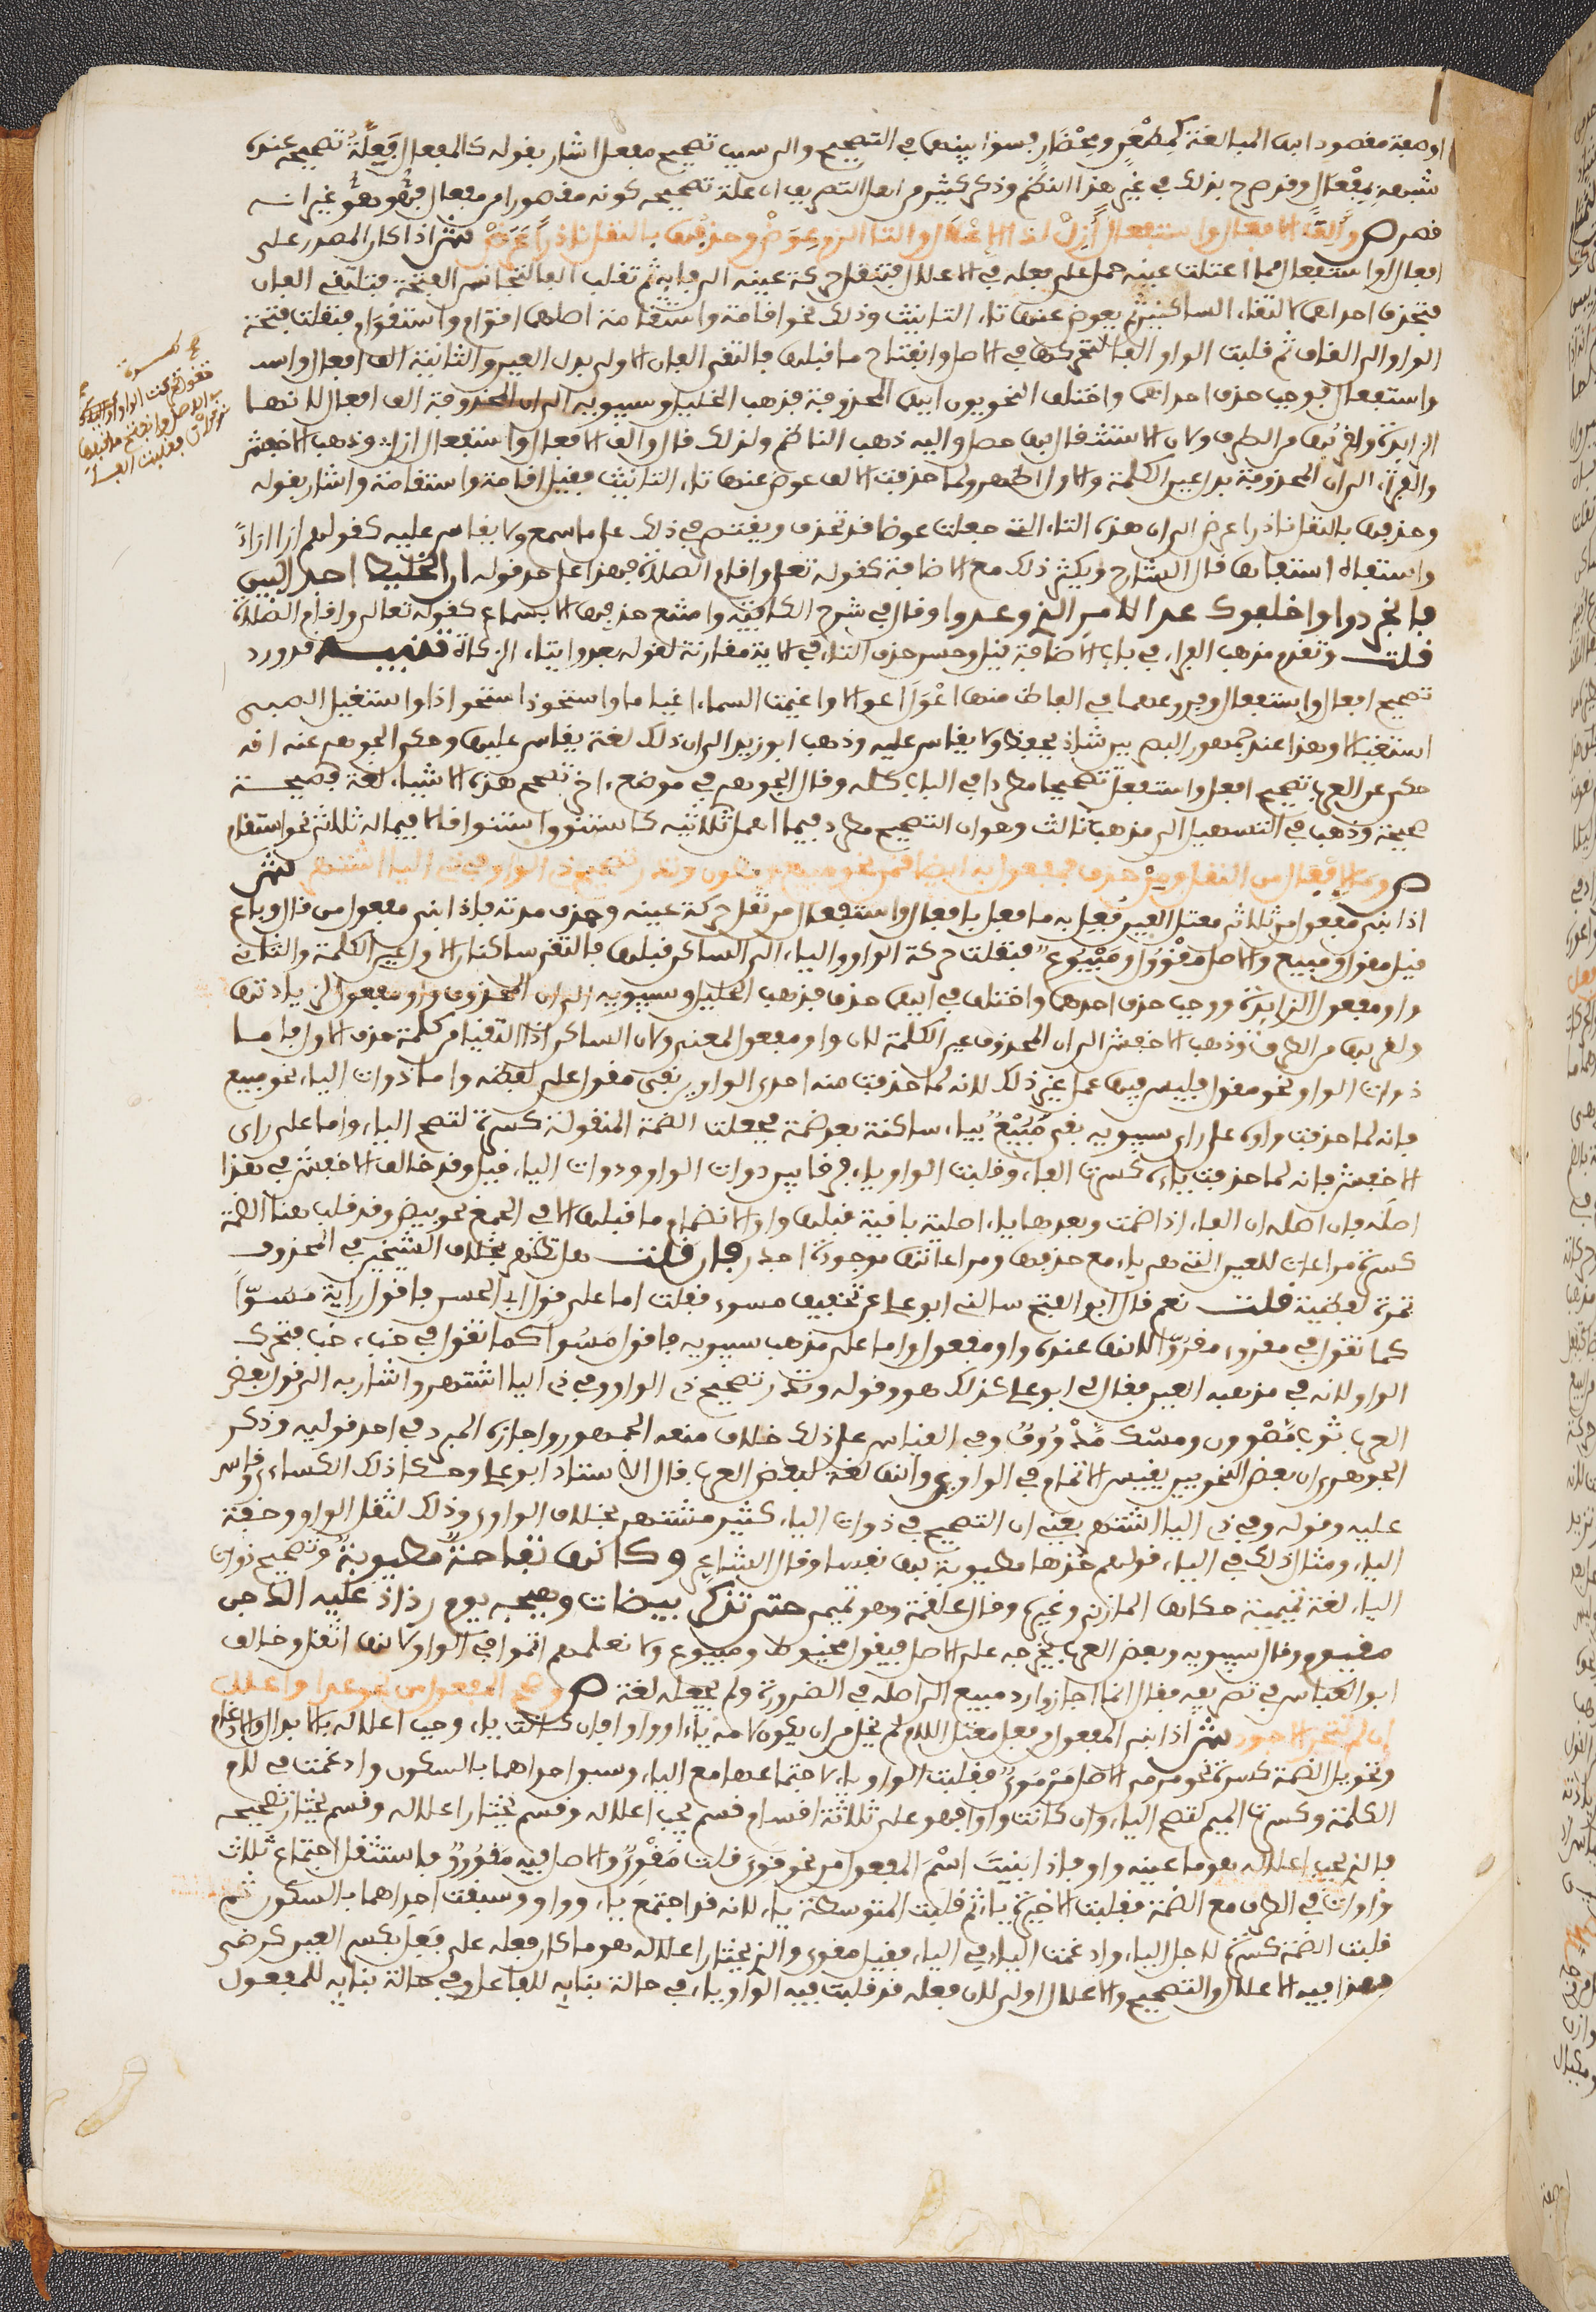 او صفة مقصودا بها المبالغة كمطعن ومحضار فسوا بينهما في التصحيح والى سبب تصحيح مفعل اشار بقوله كالمفعال فعلة تصحيحه عنده
شبهه بمفعال وقد صرح بذلك في غير هذا النظم وذكر كثير من اهل التصريف ان علة تصحيحه كونه مقصورا من مفعال فهو هو غير انه
قصر ص والف الافعال واستفعال ازل لذا الاعلال والتا الزم عوض وحذفها بالنقل نادرا عرض ش اذا كان المصدر على
افعال او استفعال مما اعتلت عينه حمل على فعله في الاعلال فتنقل حركة عينه الى فايه ثم تقلب الفا لتجانس الفتحة فيلتقي الفان
فتحذف احداهما لالتقاء الساكنين ثم يعوض عنها تاء التانيث وذلك نحو اقامة واستقامة اصلها اقوام واستقوام فنقلت فتحة
الواو الى القاف ثم قلبت الواو الفا لتحركها في الاصل وانفتاح ما قبلها فالتقى الفان الاولى بدل العين والثانية الف افعال واست
واستفعال فوجب حذف احداهما واختلف النحويون ايهما المحذوفة فذهب الخليل وسيبويه الى ان المحذوفة الف افعال لانها
الزايدة ولقربها من الطرف ولان الاستثقال بها حصل واليه ذهب الناظم ولذلك قال والف الافعال واستفعال ازل وذهب الاخفش
والفراء الى ان المحذوفة بدل عين الكلمة والاول اظهر ولما حذفت الالف عوض عنها تاء التانيث فقيل اقامة واستقامة واشار بقوله
وحذفها بالنقل نادرا عرض الى ان هذه التاء التي جعلت عوضا قد تحذف ويقتصر في ذلك على ما سمع ولا يقاس عليه كقولهم ارا اراءً
واستفاه استفاها قال الشارح ويكثر ذلك مع الاضافة كقوله تعلى واقام الصلاة فهذا على حد قوله ان الخليط اجدوا البين
فانجردوا واخلفوك عدا الامر الذي وعدوا وقال في شرح الكافية وامتنع حذفها الا بسماع كقوله تعالى واقام الصلاة
قلت وتقدم مذهب الفراء في باب الاضافة قيل وحسن حذف التاء في الاية مقارنة لقوله بعد وايتاء الزكاة تنبيه قد ورد
تصحيح افعال واستفعال وفروعهما في الفاظ منها اعول اعوالا واغيمت السماء اغياما واستحوذ استحواذا واستغيل الصبي
استغيالا وهذا عند جمهور البصريين شاذ يحفظ ولا يقاس عليه وذهب ابو زيد الى ان ذلك لغة يقاس عليها وحكى الجوهري عنه انه
حكى عن العرب تصحيح افعل واستفعل تصحيحا مطردا في الباب كله وقال الجوهري في موضع اخر تصحيح هذه الاشياء لغة فصيحة
صحيحة وذهب في التسهيل الى مذهب ثالث وهو ان التصحيح مطرد فيما اهمل ثلاثيه كاستنوق استنواقا لا فيما له ثلاثي نحو استقام
ص وما لافعال من النقل ومن حذف فمفعول به ايضا قمن نحو مبيع ومصون وندر تصحيح ذي الواو وفي ذي اليا اشتهر ش
اذا بني مفعول من ثلاثي معتل العين فعل به ما فعل بافعال واستفعال من نقل حركة عينه وحذف مدته فاذا بني مفعول من قال وباع
قيل مقول ومبيع والاصل مقوول ومبيوع فنقلت حركة الواو والياء الى الساكن قبلها فالتقى ساكنان الاول عين الكلمة والثاني
واو مفعول الزايدة ووجب حذف احدهما واختلف في ايهما حذف فذهب الخليل وسيبويه الى ان المحذوف واو مفعول لزيادتها
ولقربها من الطرف وذهب الاخفش الى ان المحذوف عين الكلمة لان واو مفعول لمعنى ولان الساكن اذا التقيا من كلمة حذف الاول فاما
ذوات الواو نحو مقول فليس فيها عمل غير ذلك لانه لما حذفت منه احدى الواوين بقي مقول على لفظه واما ذوات الياء نحو مبيع
فانه لما حذفت واوه على راي سيبويه بقي مبيع بياء ساكنة بعد ضمة فجعلت الضمة المنقولة كسرة لتصح الياء واما على راى
الاخفش فانه لما حذفت ياؤه كسرت الفاء وقلبت الواو ياء فرقا بين ذوات الواو وذوات الياء قيل وقد خالف الاخفش في هذا
اصله فان اصله ان الفاء اذا ضمت وبعدها ياء اصلية باقية قبلها واوا لانضمام ما قبلها الا في الجمع نحو بيض وقد قلب هنا الضمة
كسرة مراعاة للعين التي هي ياء مع حذفها ومراعاتها موجودة اجدر فان قلت هل تظهر لخلاف الشيخين في المحذوف
ثمرة لفظية قلت نعم قال ابو الفتح سالني ابو علي عن تخفيف مسوء فقلت اما على قول ابي الحسن فاقول رايت مسوّا
كما تقول في مقروء مقروّ لانها عنده واو مفعول واما على مذهب سيبويه فاقول مسوا كما تقول في خبء خب فتحرك
الواو لانه في مذهبه العين فقال لي ابو علي كذلك هو وقوله وندر تصحيح ذي الواو وفي ذي اليا اشتهر واشار به الى قول بعض
العرب ثوب مصوون ومسك مدووف وفي القياس على ذلك خلاف منعه الجمهور واجازه المبرد في احد قوليه وذكر
الجوهري ان بعض النحويين يقيس الاتمام في الواوي وانها لغة لبعض العرب قال الاستاذ ابو علي وحكا ذلك الكساءي وقاس
عليه وقوله وفي ذي اليا اشتهر يعني ان التصحيح في ذوات الياء كثير مشتهر بخلاف الواوي وذلك لثقل الواو وخفة
الياء ومثال ذلك في الياء قولهم خذها مطيوبة بها نفسا وقال الشاعر وكانها تفاحة مطيوبة وتصحيح ذوات
الياء لغة تميمية حكاها المازني وغيره وقال علقمة وهو تميمي حتى تذكر بيضات وهيجه يوم رذاذ عليه الدجن
مغيوم وقال سيبويه وبعض العرب يخرجه على الاصل فيقول مخيوط ومبيوع ولا نعلمهم اتموا في الواو لانها اثقل وخالف
ابو العباس في تصريفه فقال انما اجازوا رد مبيع الى اصله في الضرورة ولم يجعله لغة ص وصحح المفعول من نحو عدا واعلل
ان لم تتحر الاجودا ش اذا بني المفعول من فعل معتل اللام لم يخل من ان يكون لامه ياء او واو فان كانت ياء وجب اعلاله بالابدال والادغام
وتحويل الضمة كسرة نحو مرمي الاصل مرموي فقلبت الواو ياء لاجتماعها مع الياء وسبق احداهما بالسكون وادغمت في لام
الكلمة وكسرت الميم لتصح الياء وان كانت واوا فهو على ثلاثة اقسام قسم يجب اعلاله وقسم يختار اعلاله وقسم يختار تصحيحه
فالذي يجب اعلاله هو ما عينه واو فاذا بنيت اسم المفعول من نحو قوي قلت مقوي والاصل فيه مقووو فاستثقل اجتماع ثلاث
واوات في الطرف مع الضمة فقلبت الاخيرة ياء ثم قلبت المتوسطة ياء لانه قد اجتمع ياء وواو وسبقت احداهما بالسكون ثم
قلبت الضمة كسرة لاجل الياء وادغمت الياء في الياء فقيل مقوي والذي يختار اعلاله هو ما كان فعله على فعل بكسر العين كرضي
فهذا فيه الاعلال والتصحيح والاعلال اولى لان فعله قد قلبت فيه الواو ياء في حالة بنايه للفاعل وفي حالة بنايه للمفعول